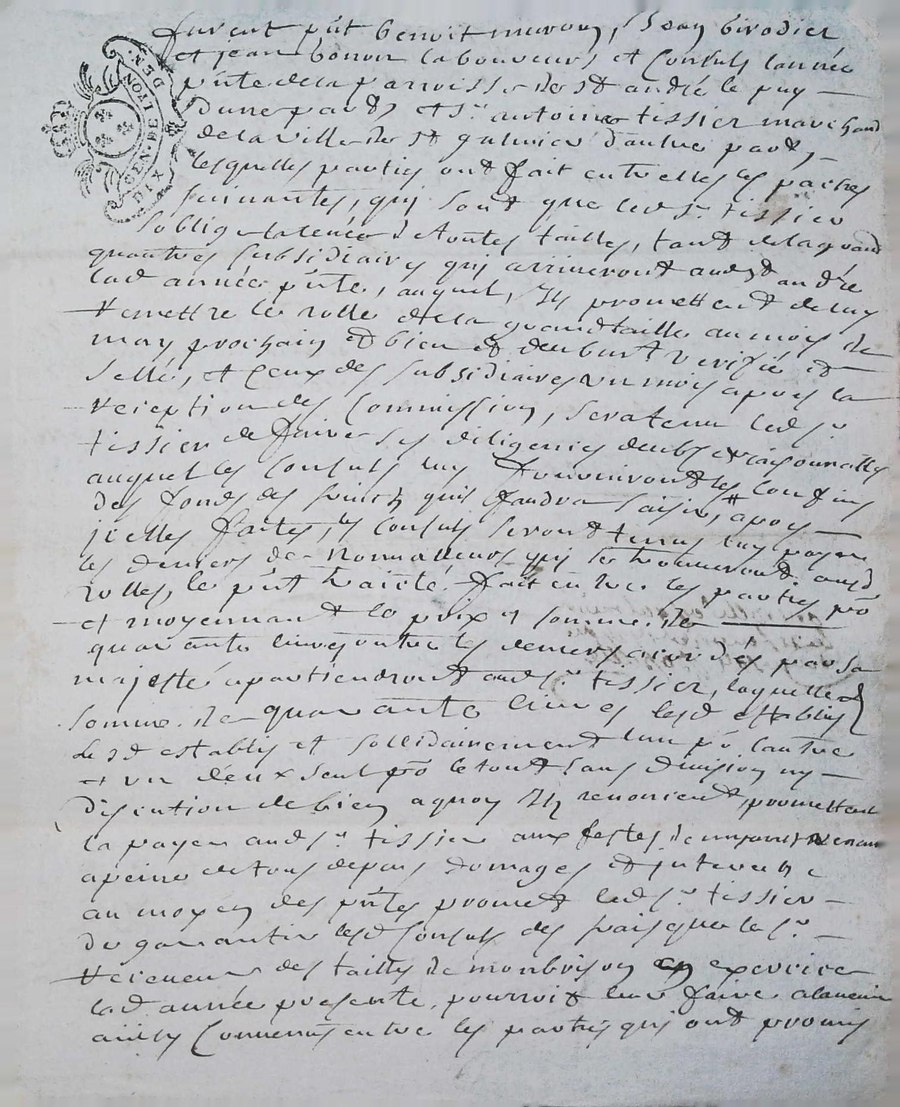 GEN. DE LYON
DIX DEN.
furent pñt benoit mivon, Jean Girodier
et jean bonon laboureurs et Consuls lannée
pñte de la parroisse de St andré le puy
dune part, et Sr. antoine tissier marchand
de la ville de St galmier dautre part,
lesquelles parties ont fait entre elles les pactes
suivantes, qui sont que led Sr. tissier
soblige
toutes tailles, tant de la grand
quautres subsidiaires qui arriveront aud St andré
lad année pñte, auquel, Ils promettent de luy
remettre le rolle de la grand taille au mois de
may prochain et bien et deubmt verifié et
sellé, et ceux des subsidiaires un mois apres la
reception des Commission, sera tenu led Sr.
tissier de faire ses diligences deubs et raisonnables
auquel les Consuls luy fourniront les confins
des fonds des fruicts quil faudra saisir, apres
jcelles faites, les Consuls seront tenus luy payer
les deniers de Nonvalleurs qui se trouveront ausd
rolles, le pñt traité fait entre les parties pō
et moyennant le prix et somme de
quarante livres outre les deniers
par sa
majesté apartiendront aud Sr. tissier, laquelle
somme de quarante livres lesd establis
Lesd establis et sollidairement lun pō lautre
et un deux seul pō le tout sans division ny
discution de bien a quoy Ils renoncent, promettent
la payer aud Sr. tissier aux festes de
a peine de tous depans domages et interest
au moyen des pñtes promet led Sr. tissier
de garantir lesd Consuls des frais que le Sr.
receveur des tailles de monbrison en exercice
lad année presente, pourroit leur faire
ainsy Convenu entre les parties qui ont promis